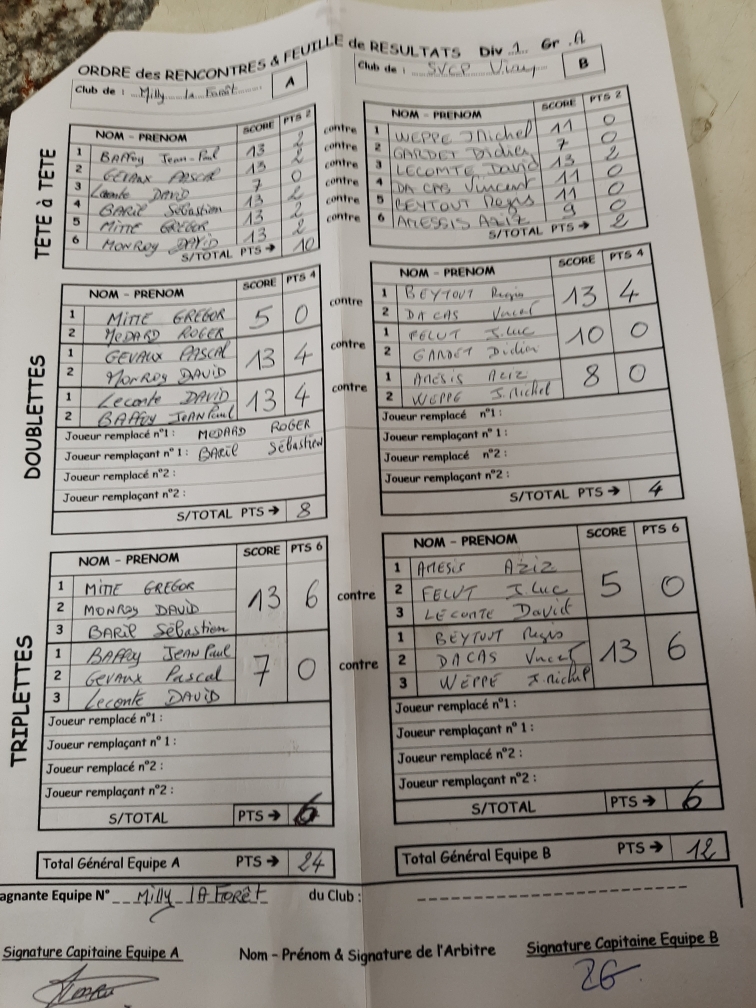 ORDRE des RENCONTRES & FEUILLE de RESULTATS Div 1 Gr A
Club de : Milly la Forêt A
Club de : SVCP Viry B
TÊTE à TÊTE
NOM - PRENOM SCORE PTS 2
1 BAFFOY Jean-Paul 13 2
2 GEVAUX PASCAL 13 2
3 Leconte DAVID 7 0
4 BARIL Sébastien 13 2
5 MITTE GREGOR 13 2
6 MONROY DAVID 13 2
S/TOTAL PTS → 10
contre
contre
contre
contre
contre
contre
NOM - PRENOM SCORE PTS 2
1 WEPPE J Michel 11 0
2 GARDET Didier 7 0
3 LECOMTE David 13 2
4 DA CAS Vincent 11 0
5 BEYTOUT Regis 11 0
6 AMESSIS Aziz 9 0
S/TOTAL PTS → 2
DOUBLETTES
NOM - PRENOM SCORE PTS 4
1 MITTE GREGOR 5 0
2 MEDARD ROGER
1 GEVAUX PASCAL 13 4
2 MONROY DAVID
1 Leconte DAVID 13 4
2 BAFFOY JEAN Paul
Joueur remplacé n°1 : MEDARD ROGER
Joueur remplaçant n° 1 : BARIL Sébastien
Joueur remplacé n°2 :
Joueur remplaçant n°2 :
S/TOTAL PTS → 8
contre
contre
contre
NOM - PRENOM SCORE PTS 4
1 BEYTOUT Regis 13 4
2 DA CAS Vincent
1 FELUT J.Luc 10 0
2 GARDET Didier
1 AMESIS AZIZ 8 0
2 WEPPE J.Michel
Joueur remplacé n°1 :
Joueur remplaçant n° 1 :
Joueur remplacé n°2 :
Joueur remplaçant n°2 :
S/TOTAL PTS → 4
TRIPLETTES
NOM - PRENOM SCORE PTS 6
1 MITTE GREGOR
2 MONROY DAVID 13 6
3 BARIL Sébastien
1 BAFFOY JEAN Paul
2 GEVAUX Pascal 7 0
3 Leconte DAVID
Joueur remplacé n°1 :
Joueur remplaçant n° 1 :
Joueur remplacé n°2 :
Joueur remplaçant n°2 :
S/TOTAL PTS → 6
contre
contre
NOM - PRENOM SCORE PTS 6
1 AMESIS AZIZ
2 FELUT J.Luc 5 0
3 LECOMTE David
1 BEYTOUT Regis
2 DACAS Vincent 13 6
3 WEPPE J.michel
Joueur remplacé n°1 :
Joueur remplaçant n° 1 :
Joueur remplacé n°2 :
Joueur remplaçant n°2 :
S/TOTAL PTS → 6
Total Général Equipe A PTS → 24
Total Général Equipe B PTS → 12
agnante Equipe N° Milly lA Forêt du Club :
Signature Capitaine Equipe A
Nom - Prénom & Signature de l'Arbitre
Signature Capitaine Equipe B